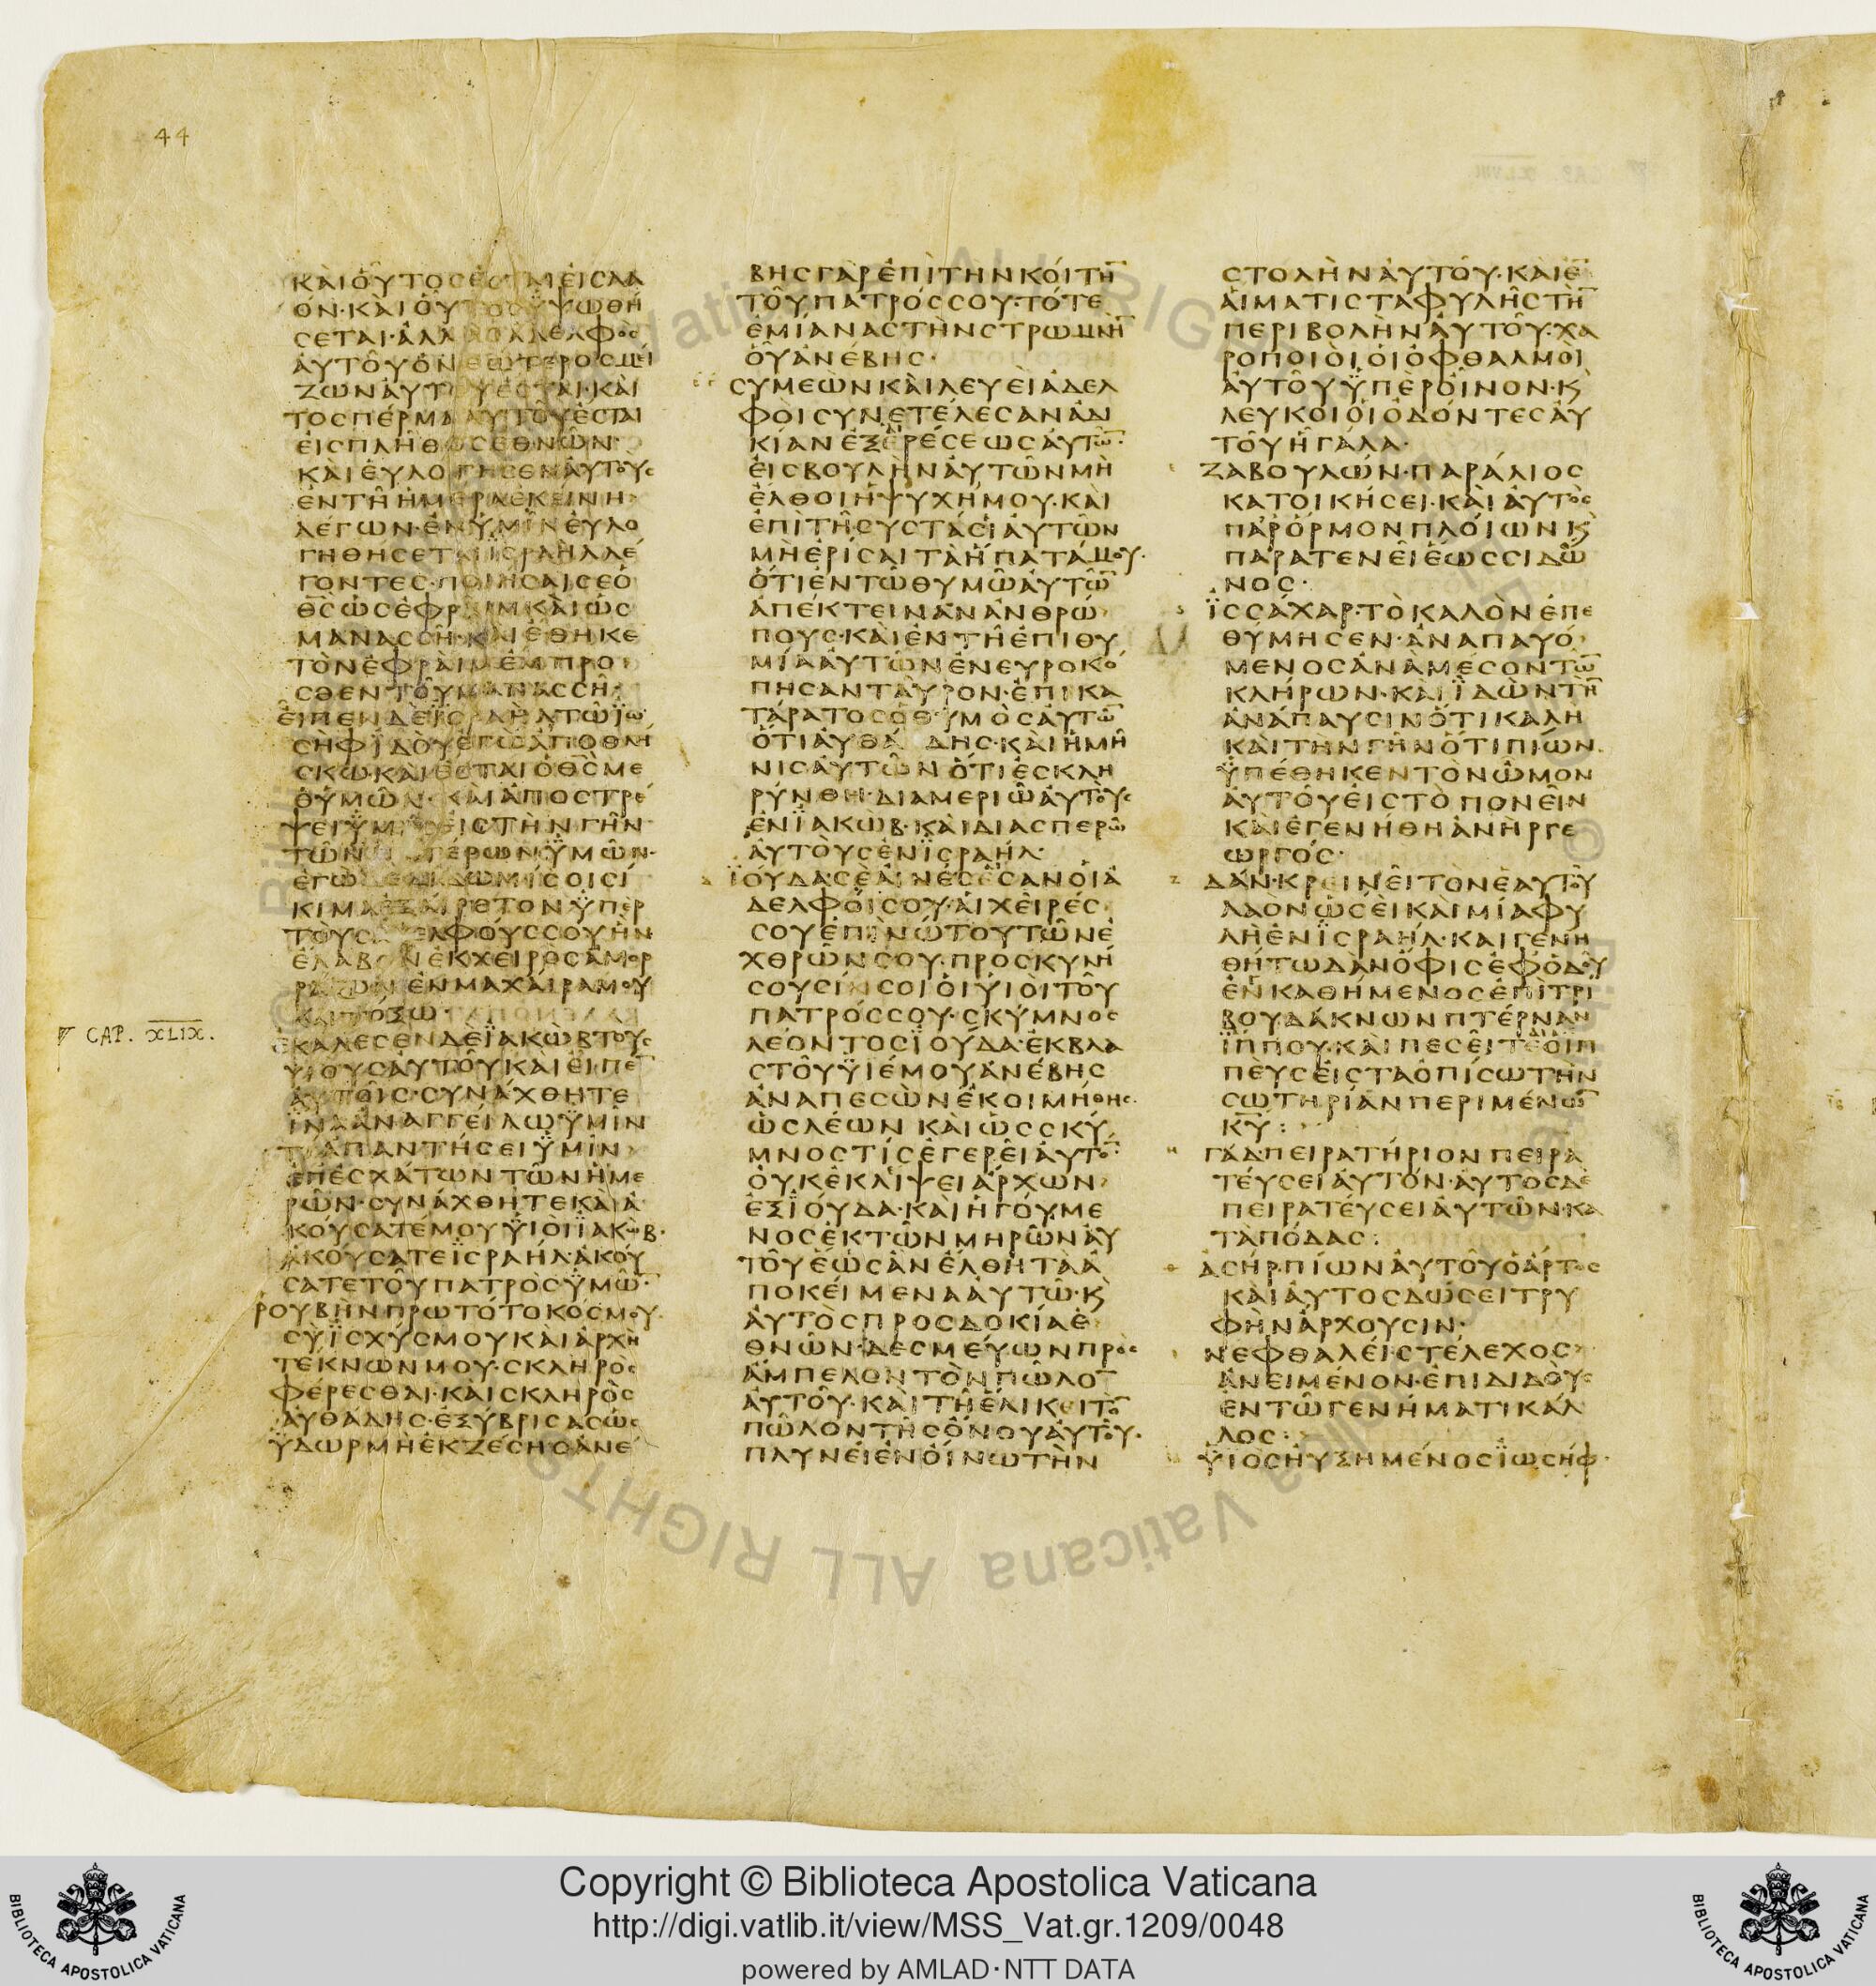 44
ΚΑΙΟΥΤΟΣ ΕΙΣΛΑ
ΟΝ·ΚΑΙΟΥΤΟΣΫΨΩΘΗ
ΣΕΤΑΙ·ΑΛΛ ΑΔΕΛΦΟΣ
ΑΥΤΟΥΟΝΕΩΤΕΡΟΣΜΕΙ
ΖΩΝΑΥΤΟΥΕΣΤΑΙ·ΚΑΙ
ΤΟΣΠΕΡΜΑΑΥΤΟΥΕΣΤΑΙ
ΕΙΣΠΛΗΘΟΣΕΘΝΩΝ·
ΚΑΙΕΥΛΟΓΗΣΕΝΑΥΤΟΥΣ
ΕΝΤΗΗΜΕΡΑΕΚΕΙΝΗ
ΛΕΓΩΝ·ΕΝΫΜΙΝΕΥΛΟ
ΓΗΘΗΣΕΤΑΙΪΣΡΑΗΛΛΕ
ΓΟΝΤΕΣ·ΠΟΙΗΣΑΙΣΕΟ
Θ̅Σ̅ΩΣΕΦΡΑΙΜΚΑΙΩΣ
ΜΑΝΑΣΣΗ·ΚΑΙΕΘΗΚΕ
ΤΟΝΕΦΡΑΙΜΕΜΠΡΟ
ΣΘΕΝΤΟΥΜΑΝΑΣΣΗ·
ΕΙΠΕΝΔΕΪΣΡΑΗΛΤΩΪΩ
ΣΗΦΪΔΟΥΕΓΩΑΠΟΘΝΗ
ΣΚΩ·ΚΑΙΕΣΤΑΙΟΘ̅Σ̅ΜΕ
ΘΥΜΩΝ·ΚΑΙΑΠΟΣΤΡΕ
ΨΕΙΫΜ ΕΙΣΤΗΝΓΗΝ
ΤΩΝ ΤΕΡΩΝΫΜΩΝ·
ΕΓΩΔΕΔΙΔΩΜΙΣΟΙΣΙ
ΚΙΜΑΕΞΑΙΡΕΤΟΝΫΠΕΡ
ΤΟΥΣΑΔΕΛΦΟΥΣΣΟΥΗΝ
ΕΛΑΒΟΝΕΚΧΕΙΡΟΣΑΜΟΡ
ΡΑΙΩΝΕΝΜΑΧΑΙΡΑΜΟΥ
ΚΑΙΤΟΞΩ
CAP. XLIX.
ΕΚΑΛΕΣΕΝΔΕΪΑΚΩΒΤΟΥΣ
ΥΙΟΥΣΑΥΤΟΥΚΑΙΕΙΠΕ̅
ΑΥΤΟΙΣ·ΣΥΝΑΧΘΗΤΕ
ΪΝΑΑΝΑΓΓΕΙΛΩΫΜΙΝ
ΤΙΑΠΑΝΤΗΣΕΙΫΜΙΝ
ΕΠΕΣΧΑΤΩΝΤΩΝΗΜΕ
ΡΩΝ·ΣΥΝΑΧΘΗΤΕΚΑΙΑ
ΚΟΥΣΑΤΕΜΟΥΫΙΟΙΪΑΚΩΒ·
ΑΚΟΥΣΑΤΕΪΣΡΑΗΛ·ΑΚΟΥ
ΣΑΤΕΤΟΥΠΑΤΡΟΣΫΜΩ̅·
ΡΟΥΒΗΝΠΡΩΤΟΤΟΚΟΣΜΟΥ·
ΣΥΪΣΧΥΣΜΟΥΚΑΙΑΡΧΗ
ΤΕΚΝΩΝΜΟΥ·ΣΚΛΗΡΟΣ
ΦΕΡΕΣΘΑΙ·ΚΑΙΣΚΛΗΡΟΣ
ΑΥΘΑΔΗΣ·ΕΞΥΒΡΙΣΑΣΩΣ
ΫΔΩΡΜΗΕΚΖΕΣΗΣΑΝΕ
ΒΗΣΓΑΡΕΠΙΤΗΝΚΟΙΤΗ̅
ΤΟΥΠΑΤΡΟΣΣΟΥ·ΤΟΤΕ
ΕΜΙΑΝΑΣΤΗΝΣΤΡΩΜΝΗ̅
ΟΥΑΝΕΒΗΣ·
ΣΥΜΕΩΝΚΑΙΛΕΥΕΙΑΔΕΛ
ΦΟΙΣΥΝΕΤΕΛΕΣΑΝΑΔΙ
ΚΙΑΝΕΞΕΡΕΣΕΩΣΑΥΤΩ̅·
ΕΙΣΒΟΥΛΗΝΑΥΤΩΝΜΗ
ΕΛΘΟΙΗΨΥΧΗΜΟΥ·ΚΑΙ
ΕΠΙΤΗΣΥΣΤΑΣΙΑΥΤΩΝ
ΜΗΕΡΙΣΑΙΤΑΗΠΑΤΑΜΟΥ·
ΟΤΙΕΝΤΩΘΥΜΩΑΥΤΩ̅
ΑΠΕΚΤΕΙΝΑΝΑΝΘΡΩ
ΠΟΥΣ·ΚΑΙΕΝΤΗΕΠΙΘΥ
ΜΙΑΑΥΤΩΝΕΝΕΥΡΟΚΟ
ΠΗΣΑΝΤΑΥΡΟΝ·ΕΠΙΚΑ
ΤΑΡΑΤΟΣΟΘΥΜΟΣΑΥΤΩ̅
ΟΤΙΑΥΘΑΔΗΣ·ΚΑΙΗΜΗ
ΝΙΣΑΥΤΩΝΟΤΙΕΣΚΛΗ
ΡΥΝΘΗ·ΔΙΑΜΕΡΙΩΑΥΤΟΥΣ
ΕΝΪΑΚΩΒ·ΚΑΙΔΙΑΣΠΕΡΩ
ΑΥΤΟΥΣΕΝΪΣΡΑΗΛ·
ΪΟΥΔΑ·ΣΕΑΙΝΕΣΕΣΑΝΟΙΑ
ΔΕΛΦΟΙΣΟΥ·ΑΙΧΕΙΡΕΣ
ΣΟΥΕΠΙΝΩΤΟΥΤΩΝΕ
ΧΘΡΩΝΣΟΥ·ΠΡΟΣΚΥΝΗ
ΣΟΥΣΙΝΣΟΙΟΙΥΙΟΙΤΟΥ
ΠΑΤΡΟΣΣΟΥ·ΣΚΥΜΝΟΣ
ΛΕΟΝΤΟΣΪΟΥΔΑ·ΕΚΒΛΑ
ΣΤΟΥΫΙΕΜΟΥΑΝΕΒΗΣ
ΑΝΑΠΕΣΩΝΕΚΟΙΜΗΘΗΣ·
ΩΣΛΕΩΝΚΑΙΩΣΣΚΥ
ΜΝΟΣΤΙΣΕΓΕΡΕΙΑΥΤΟ̅·
ΟΥΚΕΚΛΙΨΕΙΑΡΧΩΝ
ΕΞΪΟΥΔΑ·ΚΑΙΗΓΟΥΜΕ
ΝΟΣΕΚΤΩΝΜΗΡΩΝΑΥ
ΤΟΥΕΩΣΑΝΕΛΘΗΤΑΑ
ΠΟΚΕΙΜΕΝΑΑΥΤΩ·Κ̀
ΑΥΤΟΣΠΡΟΣΔΟΚΙΑΕ
ΘΝΩΝ·ΔΕΣΜΕΥΩΝΠΡΟΣ
ΑΜΠΕΛΟΝΤΟΝΠΩΛΟ̅
ΑΥΤΟΥ·ΚΑΙΤΗΕΛΙΚΕΙΤΟ̅
ΠΩΛΟΝΤΗΣΟΝΟΥΑΥΤΟΥ·
ΠΛΥΝΕΙΕΝΟΙΝΩΤΗΝ
ΣΤΟΛΗΝΑΥΤΟΥ·ΚΑΙΕ̅
ΑΙΜΑΤΙΣΤΑΦΥΛΗΣΤΗ̅
ΠΕΡΙΒΟΛΗΝΑΥΤΟΥ·ΧΑ
ΡΟΠΟΙΟΙΟΙΟΦΘΑΛΜΟΙ
ΑΥΤΟΥΫΠΕΡΟΙΝΟΝ·Κ̀
ΛΕΥΚΟΙΟΙΟΔΟΝΤΕΣΑΥ
ΤΟΥΗΓΑΛΑ·
ΖΑΒΟΥΛΩΝ·ΠΑΡΑΛΙΟΣ
ΚΑΤΟΙΚΗΣΕΙ·ΚΑΙΑΥΤΟΣ
ΠΑΡΟΡΜΟΝΠΛΟΙΩΝΚ̀
ΠΑΡΑΤΕΝΕΙΕΩΣΣΙΔΩ
ΝΟΣ·
ΪΣΣΑΧΑΡ·ΤΟΚΑΛΟΝΕΠΕ
ΘΥΜΗΣΕΝ·ΑΝΑΠΑΥΟ
ΜΕΝΟΣΑΝΑΜΕΣΟΝΤΩ̅
ΚΛΗΡΩΝ·ΚΑΙΪΔΩΝΤΗ̅
ΑΝΑΠΑΥΣΙΝΟΤΙΚΑΛΗ
ΚΑΙΤΗΝΓΗΝΟΤΙΠΙΩΝ
ΫΠΕΘΗΚΕΝΤΟΝΩΜΟΝ
ΑΥΤΟΥΕΙΣΤΟΠΟΝΕΙΝ
ΚΑΙΕΓΕΝΗΘΗΑΝΗΡΓΕ
ΩΡΓΟΣ·
ΔΑΝ·ΚΡΕΙΝΕΙΤΟΝΕΑΥΤΟΥ
ΛΑΟΝΩΣΕΙΚΑΙΜΙΑΦΥ
ΛΗΕΝΪΣΡΑΗΛ·ΚΑΙΓΕΝΗ
ΘΗΤΩΔΑΝΟΦΙΣΕΦΟΔΟΥ
ΕΝΚΑΘΗΜΕΝΟΣΕΠΙΤΡΙ
ΒΟΥΔΑΚΝΩΝΠΤΕΡΝΑΝ
ΪΠΠΟΥ·ΚΑΙΠΕΣΕΙΤΑΙΟΙΠ
ΠΕΥΣΕΙΣΤΑΟΠΙΣΩΤΗΝ
ΣΩΤΗΡΙΑΝΠΕΡΙΜΕΝΩ̅
Κ̅Υ̅:
ΓΑΔΠΕΙΡΑΤΗΡΙΟΝΠΕΙΡΑ
ΤΕΥΣΕΙΑΥΤΟΝ·ΑΥΤΟΣΔΕ
ΠΕΙΡΑΤΕΥΣΕΙΑΥΤΩΝ·ΚΑ
ΤΑΠΟΔΑΣ:
ΑΣΗΡ·ΠΙΩΝΑΥΤΟΥΟΑΡΤΟΣ
ΚΑΙΑΥΤΟΣΔΩΣΕΙΤΡΥ
ΦΗΝΑΡΧΟΥΣΙΝ·
ΝΕΦΘΑΛΕΙ·ΣΤΕΛΕΧΟΣ
ΑΝΕΙΜΕΝΟΝ·ΕΠΙΔΙΔΟΥΣ
ΕΝΤΩΓΕΝΗΜΑΤΙΚΑΛ
ΛΟΣ:
ΫΙΟΣΗΥΞΗΜΕΝΟΣΪΩΣΗΦ·
Copyright © Biblioteca Apostolica Vaticana
http://digi.vatlib.it/view/MSS_Vat.gr.1209/0048
powered by AMLAD·NTT DATA
BIBLIOTECA APOSTOLICA VATICANA
BIBLIOTECA APOSTOLICA VATICANA